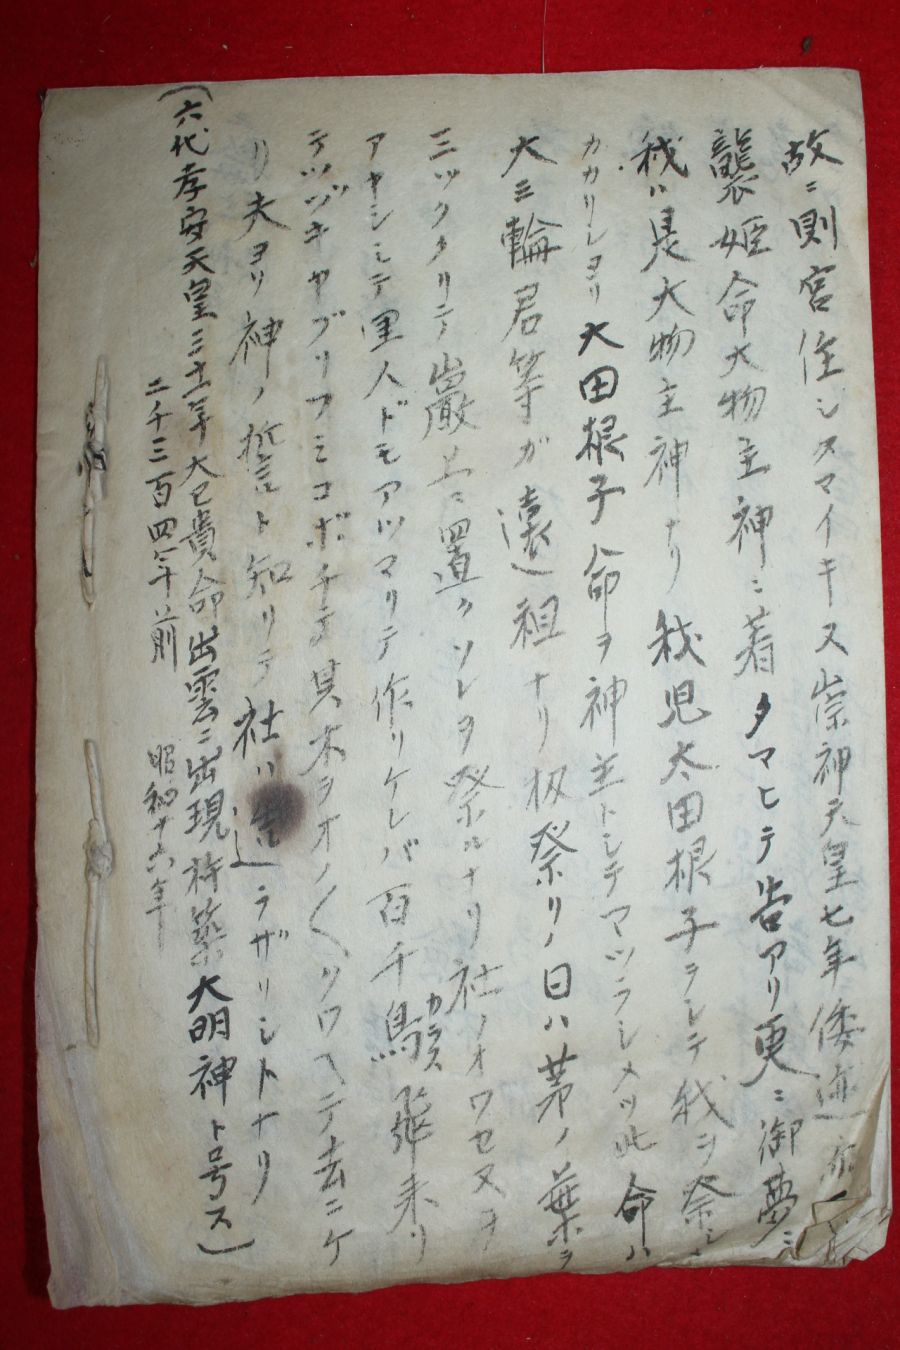 故ニ則宮住シスマイキス崇神天皇七年倭迹
襲姫命大物主神ニ着タマヒテ告アリ更ニ御夢ニ
我ハ是大物主神ナリ我児太田根子ヲシテ我ヲ祭ン
カカリシヨリ大田根子命ヲ神主トシテマツラシメツ此命ハ
大三輪君等ガ遠祖ナリ扨祭リノ日ハ茅ノ葉ヲ
三ツクタリテ巌上ニ置クソレヲ祭ルナリ社ノオワセヌヲ
アヤシミテ里人ドモアツマリテ作リケレバ百千烏カラス飛来リ
テツヅキヤブリフミコボチテ其木ヲオノ〱クワヘテ去ニケ
リ夫ヨリ神ノ誓ト知リテ社ハ造ラザリシトナリ
(六代孝安天皇三十一年大已貴命出雲ニ出現杵築大明神ト号ス)
二千三百四年前 昭和十六年